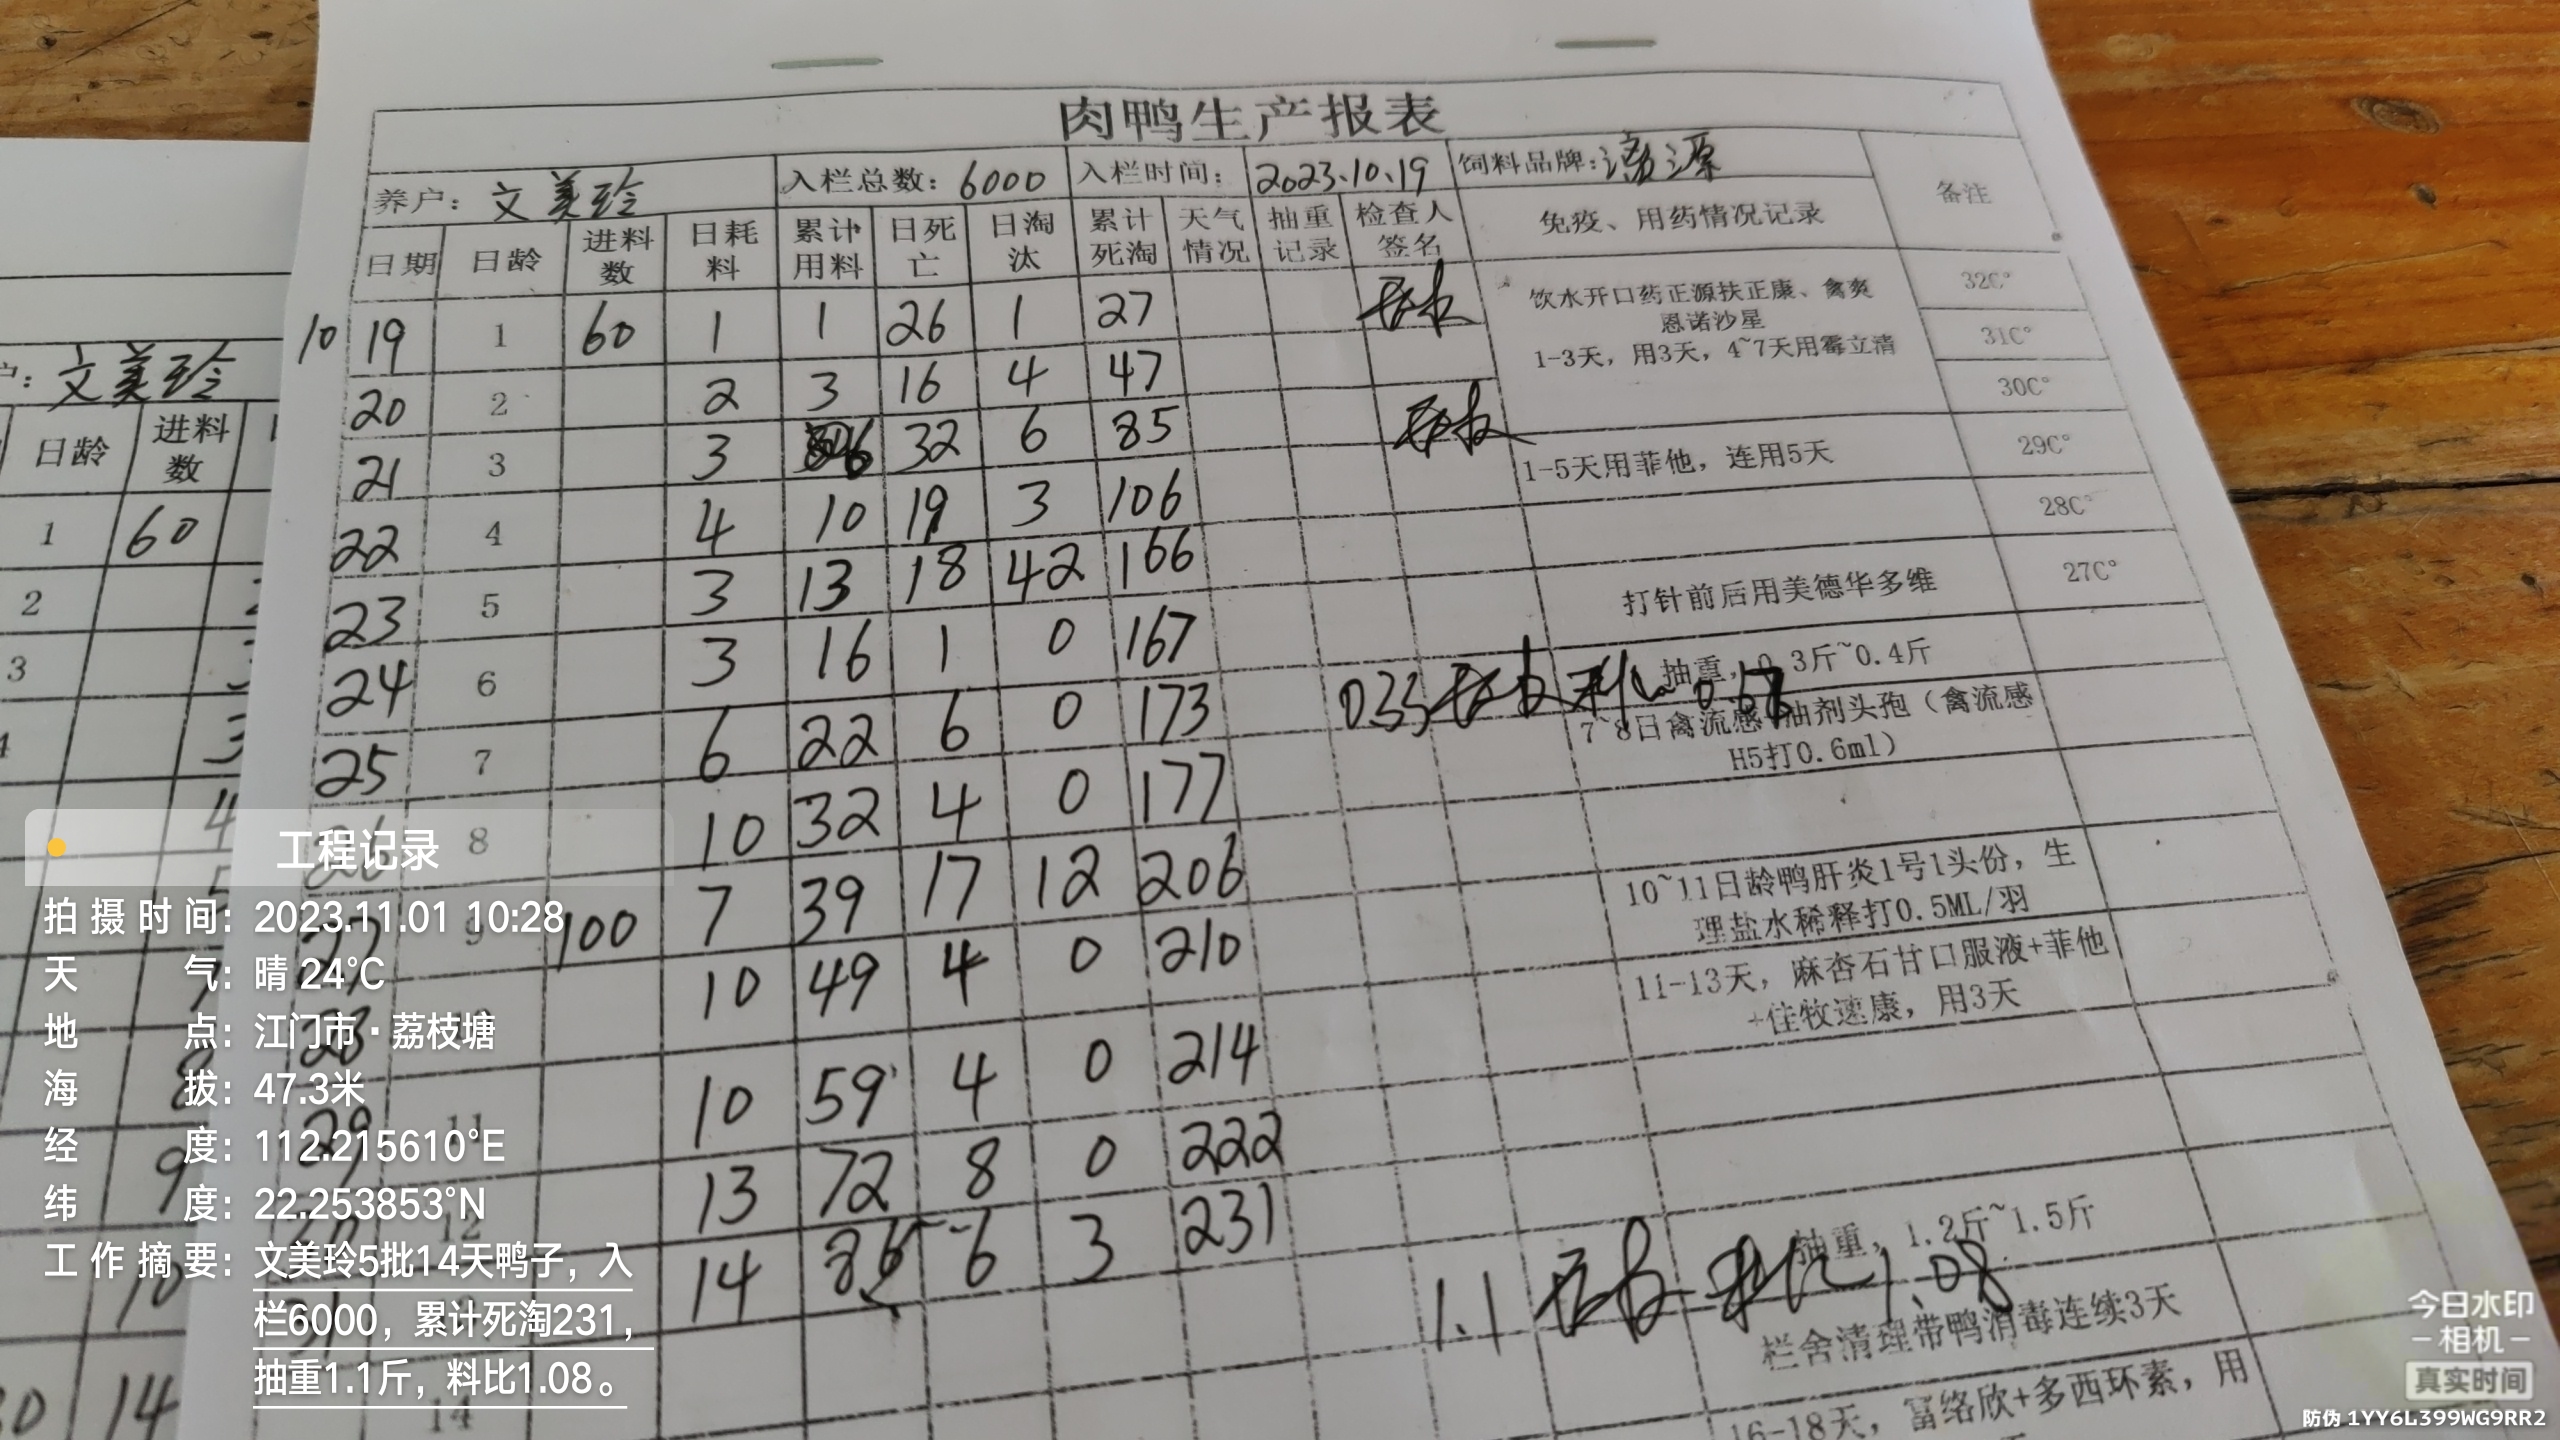 肉鸭生产报表
养户：文美玲 入栏总数：6000 入栏时间：2023.10.19 饲料品牌： 备注
日期 日龄 进料数 日耗料 累计用料 日死亡 日淘汰 累计死淘 天气情况 抽重记录 检查人签名 免疫、用药情况记录
10 19 1 60 1 1 26 1 27
20 2 2 3 16 4 47
21 3 3 6 32 6 85
22 4 4 10 19 3 106
23 5 3 13 18 42 166
24 6 3 16 1 0 167
25 7 6 22 6 0 173
8 10 32 4 0 177
27 9 100 7 39 17 12 206
28 10 49 4 0 210
29 11 10 59 4 0 214
12 13 72 8 0 222
31 14 86 6 3 231
14
饮水开口药正源扶正康、禽爽
恩诺沙星
1-3天，用3天，4~7天用霉立清
32C°
31C°
30C°
1-5天用菲他，连用5天
29C°
28C°
打针前后用美德华多维
27C°
抽重，0.3斤~0.4斤
0.33
7~8日禽流感+油剂头孢（禽流感
H5打0.6ml）
10~11日龄鸭肝炎1号1头份，生
理盐水稀释打0.5ML/羽
11-13天，麻杏石甘口服液+菲他
+佳牧速康，用3天
抽重，1.2斤~1.5斤
1.1 料比1.08
栏舍清理带鸭消毒连续3天
16-18天，富络欣+多西环素，用
户：文美玲
日龄 进料数
1 60
2
3
4
工程记录
拍摄时间：2023.11.01 10:28
天气：晴 24°C
地点：江门市·荔枝塘
海拔：47.3米
经度：112.215610°E
纬度：22.253853°N
工作摘要：文美玲5批14天鸭子，入
栏6000，累计死淘231，
抽重1.1斤，料比1.08。
今日水印
相机
真实时间
防伪 1YY6L399WG9RR2